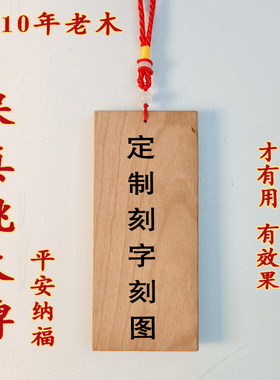 10年老木
真桃木牌
平安纳福
定制刻字刻图
才有用 有效果